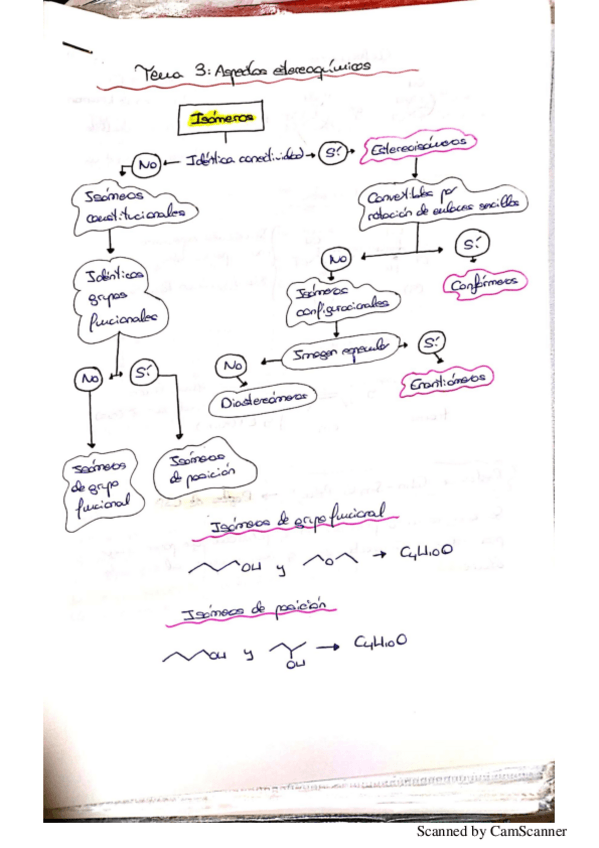 Tema 3: Aspectos estereoquímicos
Isómeros
No ← Idéntica conectividad → Sí → Estereoisómeros
Isómeros
constitucionales
Convertibles por
rotación de enlaces sencillos
No
Sí
Idénticos
grupos
funcionales
Isómeros
configuracionales
Confórmeros
No
Sí
No
Imagen especular
Sí
Diastereómeros
Enantiómeros
Isómeros
de grupo
funcional
Isómeros
de posición
Isómeros de grupo funcional
OH y O → C4H10O
Isómeros de posición
OH y OH → C4H10O
Scanned by CamScanner